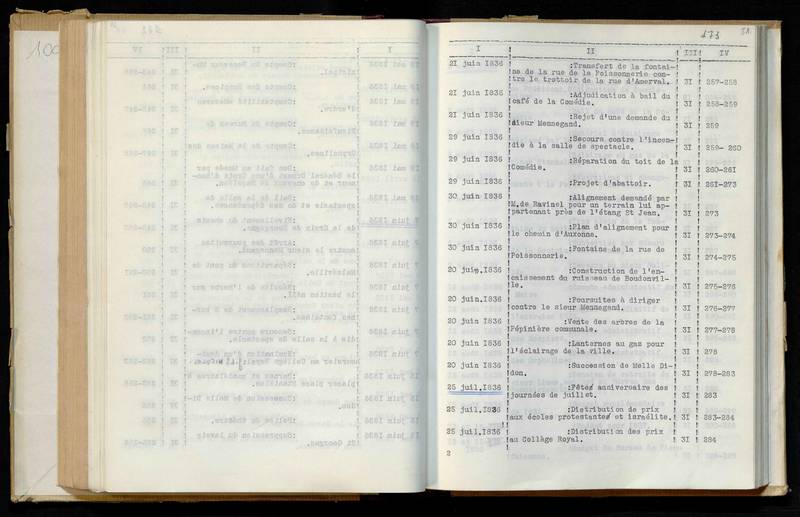 100
173 51.
I II III IV
21 juin 1836 :Transfert de la fontai-
ne de la rue de la Poissonnerie con-
tre le trottoir de la rue d'Amerval. 31 257-258
21 juin 1836 :Adjudication à bail du
café de la Comédie. 31 258-259
21 juin 1836 :Rejet d'une demande du
sieur Mennegand. 31 259
29 juin 1836 :Secours contre l'incen-
die à la salle de spectacle. 31 259- 260
29 juin 1836 :Réparation du toit de la
Comédie. 31 260-261
29 juin 1836 :Projet d'abattoir. 31 261-273
30 juin 1836 :Alignement demandé par
M.de Ravinel pour un terrain lui ap-
partenant près de l'étang St Jean. 31 273
30 juin 1836 :Plan d'alignement pour
le chemin d'Auxonne. 31 273-274
30 juin 1836 :Fontaine de la rue de
Poissonnerie. 31 274-275
20 juin 1836 :Construction de l'en-
caissement du ruisseau de Boudonvil-
le. 31 275-276
20 juin 1836 :Poursuites à diriger
contre le sieur Mennegand. 31 276-277
20 juin 1836 :Vente des arbres de la
Pépinière communale. 31 277-278
20 juin 1836 :Lanternes au gaz pour
l'éclairage de la ville. 31 278
20 juin 1836 :Succession de Melle Di-
don. 31 278-283
25 juil.1836 :Fêtes anniversaire des
journées de juillet. 31 283
25 juil.1836 :Distribution de prix
aux écoles protestantes et israélite. 31 283-284
25 juil.1836 :Distribution des prix
au Collège Royal. 31 284
2